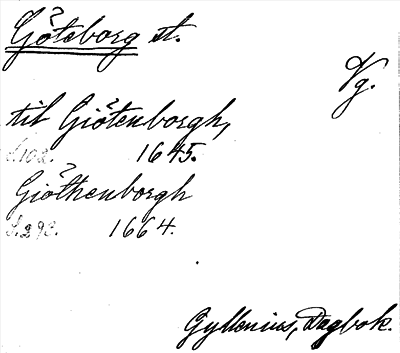 Göteborg st.
Vg.
til Giötenborgh,
s. 102. 1645.
Giöthenborgh
s. 292. 1664.
Gyllenius, Dagbok.